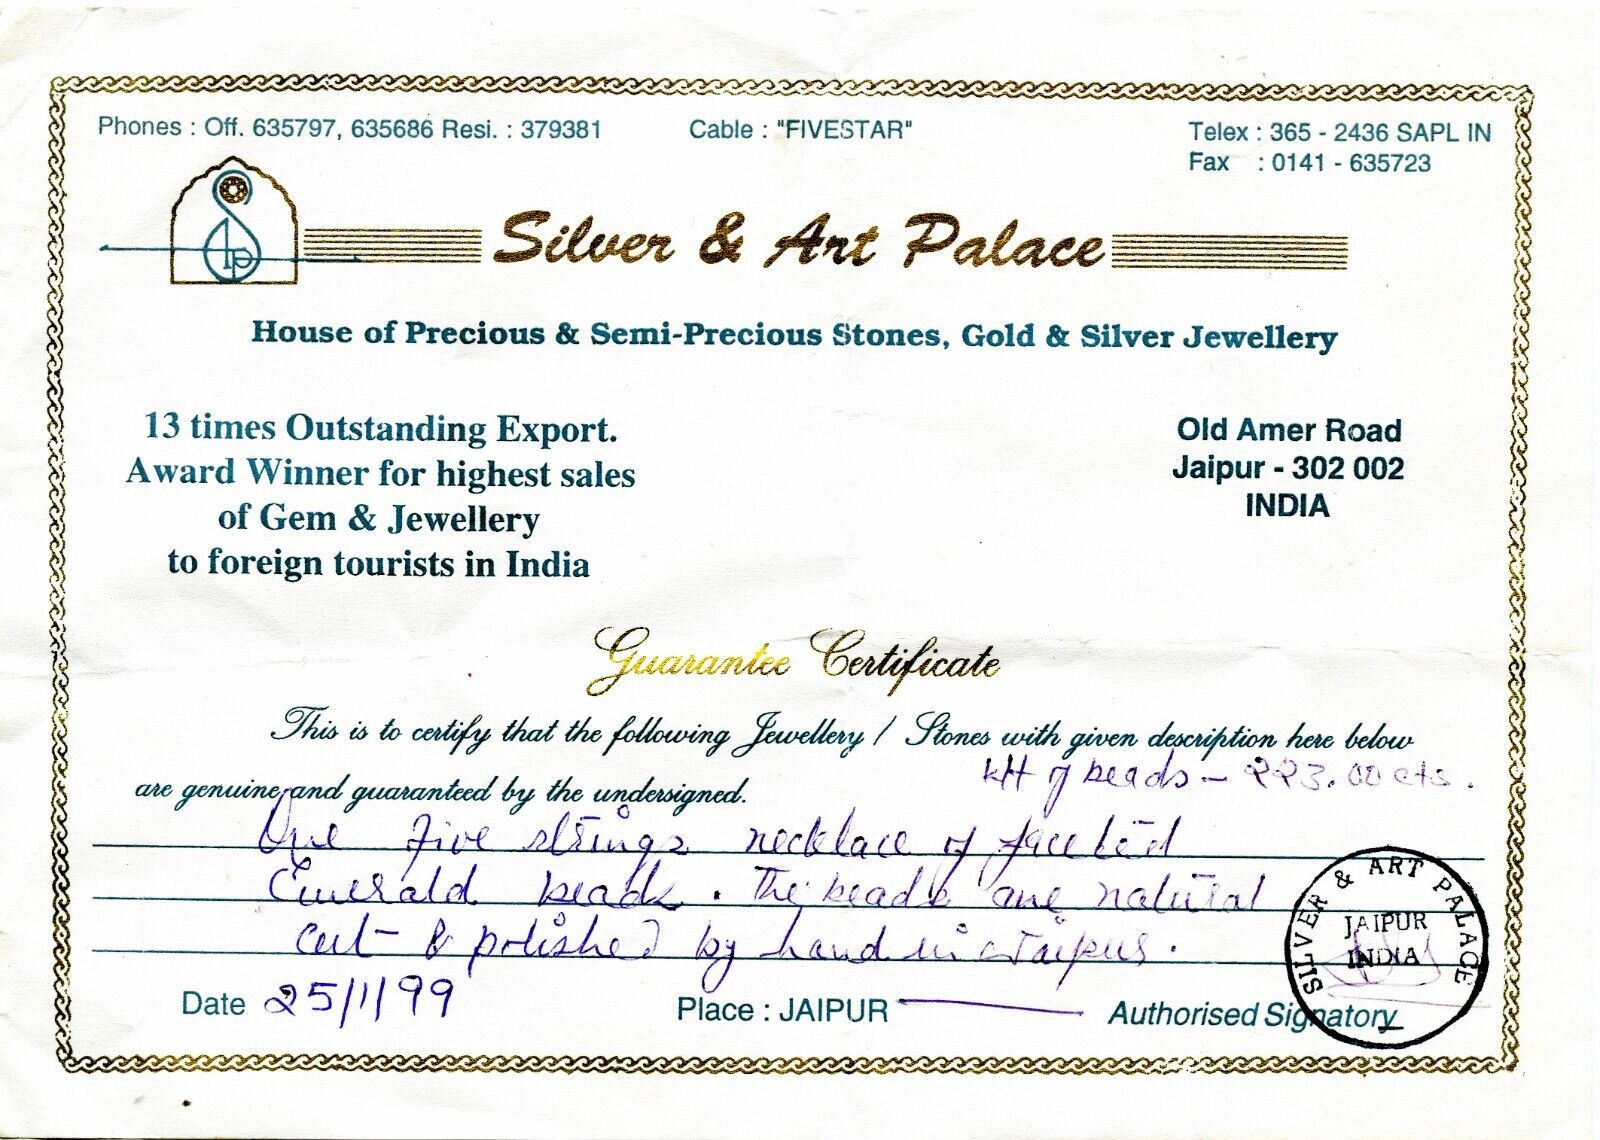 Phones : Off. 635797, 635686 Resi. : 379381
Cable : "FIVESTAR"
Telex : 365 - 2436 SAPL IN
Fax : 0141 - 635723
Silver & Art Palace
House of Precious & Semi-Precious Stones, Gold & Silver Jewellery
13 times Outstanding Export.
Award Winner for highest sales
of Gem & Jewellery
to foreign tourists in India
Old Amer Road
Jaipur - 302 002
INDIA
Guarantee Certificate
This is to certify that the following Jewellery / Stones with given description here below
are genuine and guaranteed by the undersigned.
of beads - 223.00 cts.
One five strings necklace of faceted
Emerald beads. The beads are natural
cut & polished by hand in Jaipur.
Date 25/1/99
Place : JAIPUR
Authorised Signatory
SILVER & ART PALACE
JAIPUR
INDIA